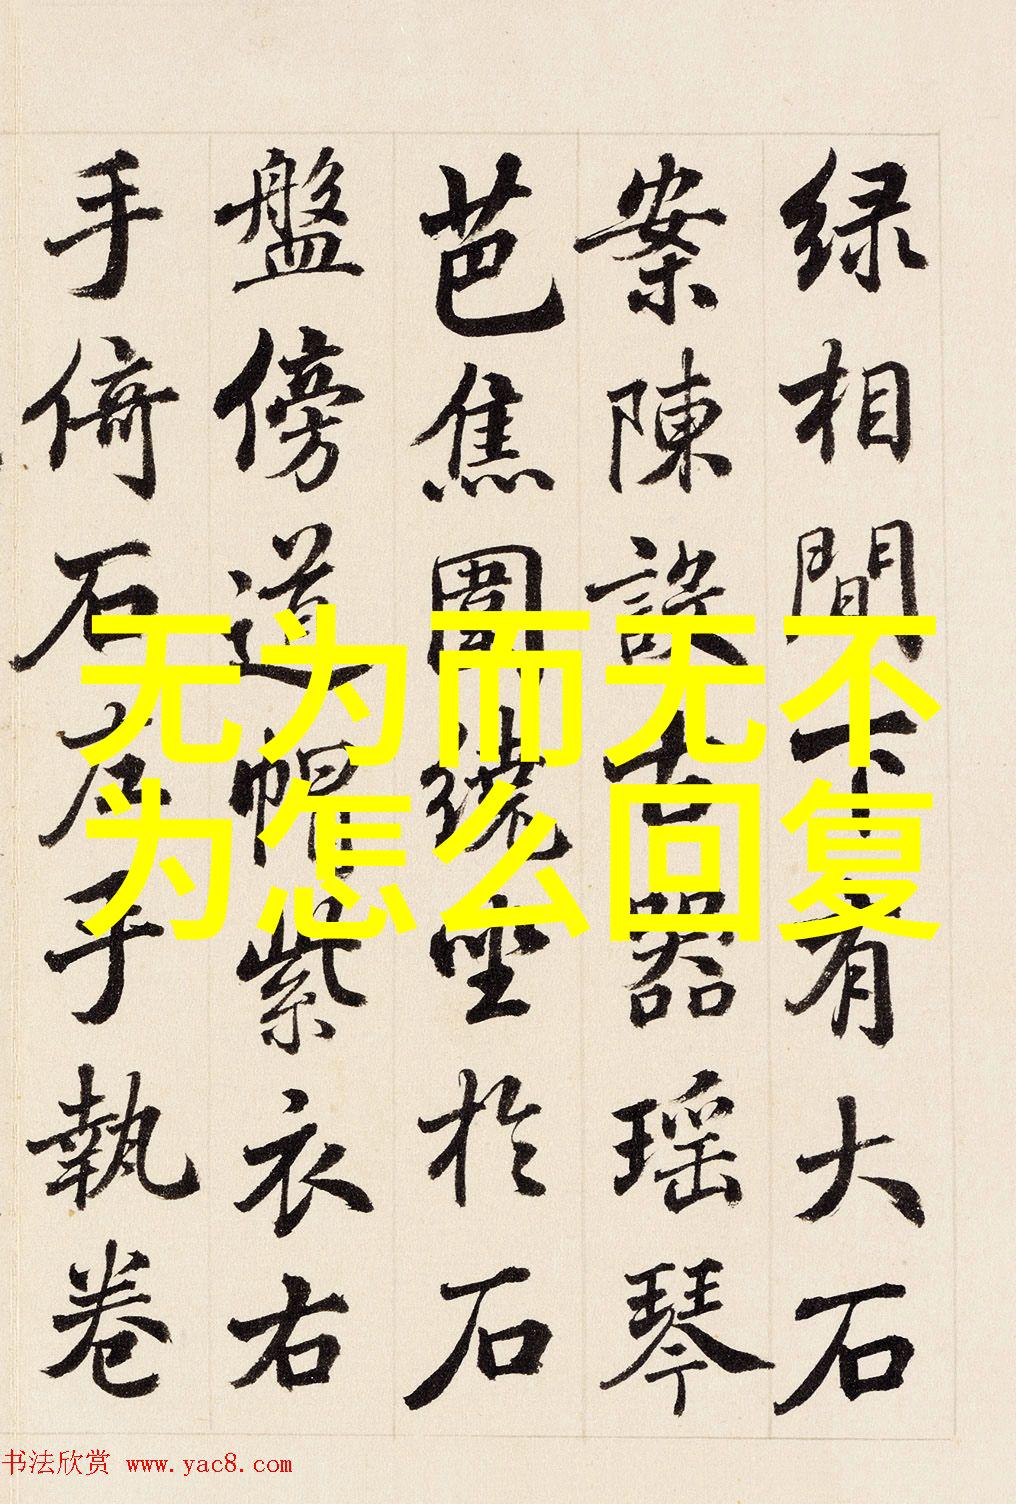 绿相間下有大石
案陳設古器瑶琴
芭焦圍繞坐於石
盤傍道帽紫衣右
手倚石左手執卷
无为而无不
为怎么回复
书法欣赏 www.yac8.com